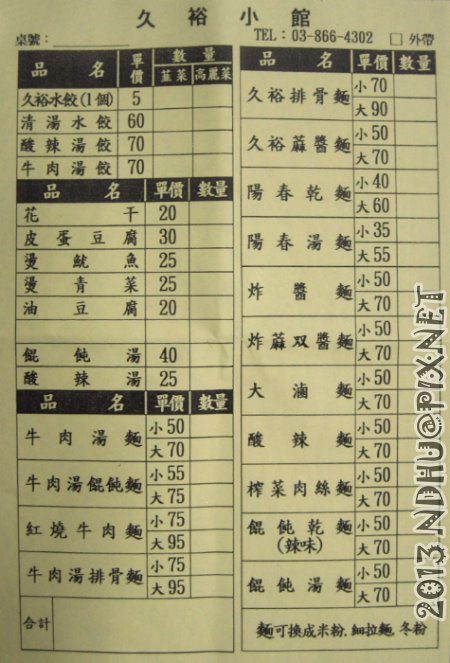 久裕小館
桌號：
TEL：03-866-4302 □ 外帶
品名 單價 數量
韮菜 高麗菜
久裕水餃(1個) 5
清湯水餃 60
酸辣湯餃 70
牛肉湯餃 70
品名 單價 數量
花干 20
皮蛋豆腐 30
燙魷魚 25
燙青菜 25
油豆腐 20
餛飩湯 40
酸辣湯 25
品名 單價 數量
牛肉湯麵 小50
大70
牛肉湯餛飩麵 小55
大75
紅燒牛肉麵 小75
大95
牛肉湯排骨麵 小75
大95
合計
品名 單價 數量
久裕排骨麵 小70
大90
久裕蔴醬麵 小50
大70
陽春乾麵 小40
大60
陽春湯麵 小35
大55
炸醬麵 小50
大70
炸蔴双醬麵 小50
大70
大滷麵 小50
大70
酸辣麵 小50
大70
榨菜肉絲麵 小50
大70
餛飩乾麵 小50
(辣味) 大70
餛飩湯麵 小50
大70
麵可換成米粉.細拉麵.冬粉
2013 NDHU@PIXNET